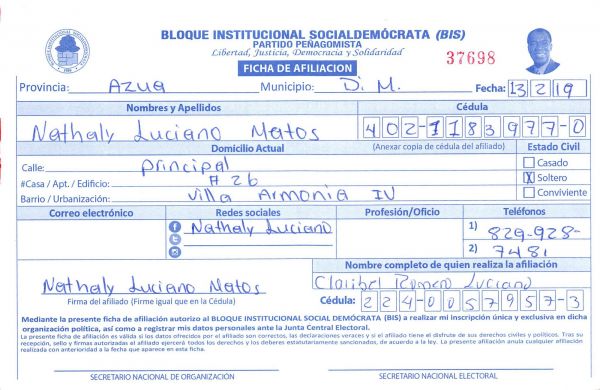 BLOQUE INSTITUCIONAL SOCIALDEMÓCRATA (BIS)
PARTIDO PEÑAGOMISTA
Libertad, Justicia, Democracia y Solidaridad
37698
FICHA DE AFILIACION
Provincia: Azua Municipio: D. M. Fecha: 13 2 19
Nombres y Apellidos Cédula
Nathaly Luciano Matos 402-1183977-0
Domicilio Actual (Anexar copia de cédula del afiliado) Estado Civil
Calle: Principal Casado
#Casa / Apt. / Edificio: # 26 X Soltero
Barrio / Urbanización: Villa Armonia IV Conviviente
Correo electrónico Redes sociales Profesión/Oficio Teléfonos
Nathaly Luciano 1) 829-928-
2) 7481
Nombre completo de quien realiza la afiliación
Nathaly Luciano Matos Claribel Romero Luciano
Firma del afiliado (Firme igual que en la Cédula) Cédula: 224-0057957-3
Mediante la presente ficha de afiliación autorizo al BLOQUE INSTITUCIONAL SOCIAL DEMÓCRATA (BIS) a realizar mi inscripción única y exclusiva en dicha
organización política, así como a registrar mis datos personales ante la Junta Central Electoral.
La presente ficha de afiliación es válida si los datos ofrecidos por el afiliado son correctos, las declaraciones veraces y si el afiliado tiene el disfrute de sus derechos civiles y políticos. Tras su
recepción, sello y firmas autorizadas el afiliado ejercerá todos los derechos y los deberes estatutariamente sancionados, de acuerdo a la ley. La presente afiliación anula cualquier afiliación
realizada con anterioridad a la fecha que aparece en esta ficha.
SECRETARIO NACIONAL DE ORGANIZACIÓN SECRETARIO NACIONAL ELECTORAL